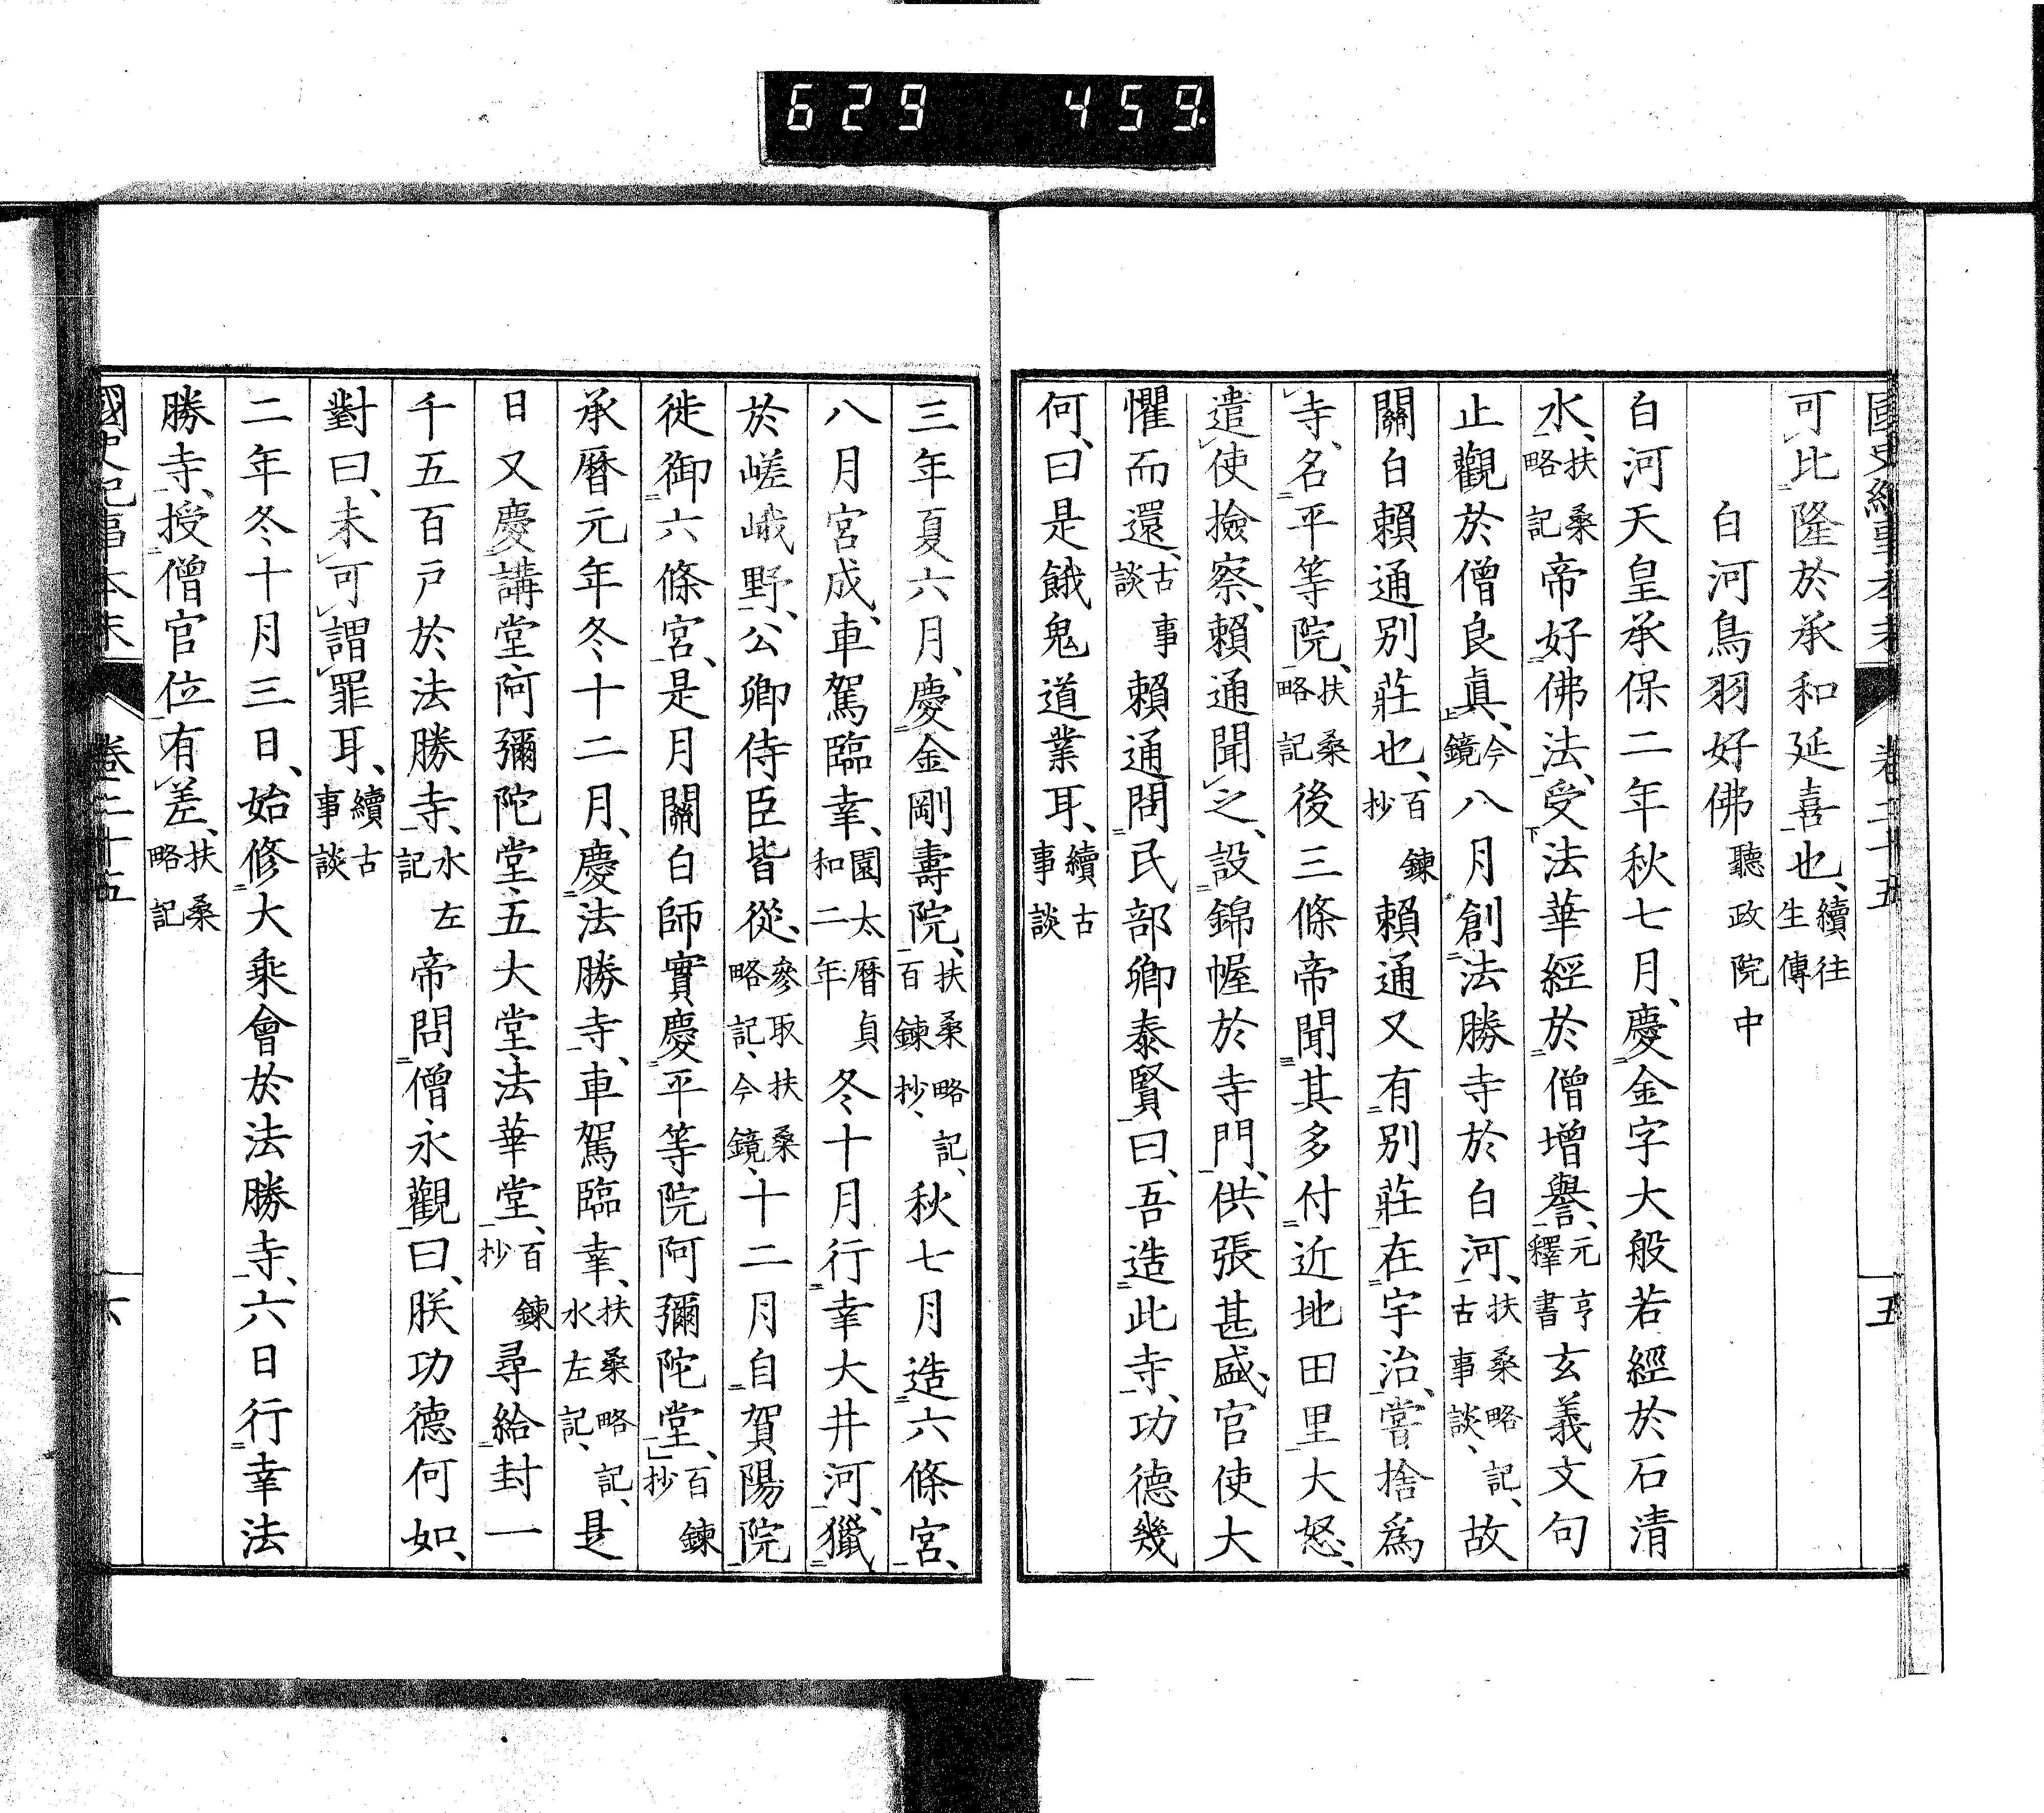 629 459.
國史紀事本末 卷二十五 五
可比隆於承和延喜也、續往生傳
白河鳥羽好佛 聽政院中
白河天皇承保二年秋七月、慶金字大般若經於石清
水、扶桑略記帝好佛法、受法華經於僧增譽、元亨釋書玄義文句
止觀於僧良真、今鏡八月創法勝寺於白河、扶桑略記、古事談、故
關白賴通別莊也、百鍊抄賴通又有別莊在宇治、嘗捨爲
寺、名平等院、扶桑略記後三條帝聞其多付近地田里大怒、
遣使撿察、賴通聞之、設錦幄於寺門、供張甚盛、官使大
懼而還、古事談賴通問民部卿泰賢曰、吾造此寺、功德幾
何、曰是餓鬼道業耳、續古事談
三年夏六月、慶金剛壽院、扶桑略記、百鍊抄、秋七月造六條宮、
八月宮成、車駕臨幸、園太曆貞和二年冬十月行幸大井河、獵
於嵯峨野、公卿侍臣皆從、參取扶桑略記、今鏡、十二月自賀陽院
徙御六條宮、是月關白師實慶平等院阿彌陀堂、百鍊抄
承曆元年冬十二月、慶法勝寺、車駕臨幸、扶桑略記、水左記、是
日又慶講堂阿彌陀堂五大堂法華堂、百鍊抄尋給封一
千五百戸於法勝寺、水左記帝問僧永觀曰、朕功德何如、
對曰、未可謂罪耳、續古事談
二年冬十月三日、始修大乘會於法勝寺、六日行幸法
勝寺、授僧官位有差、扶桑略記
國史紀事本末 卷二十五 六